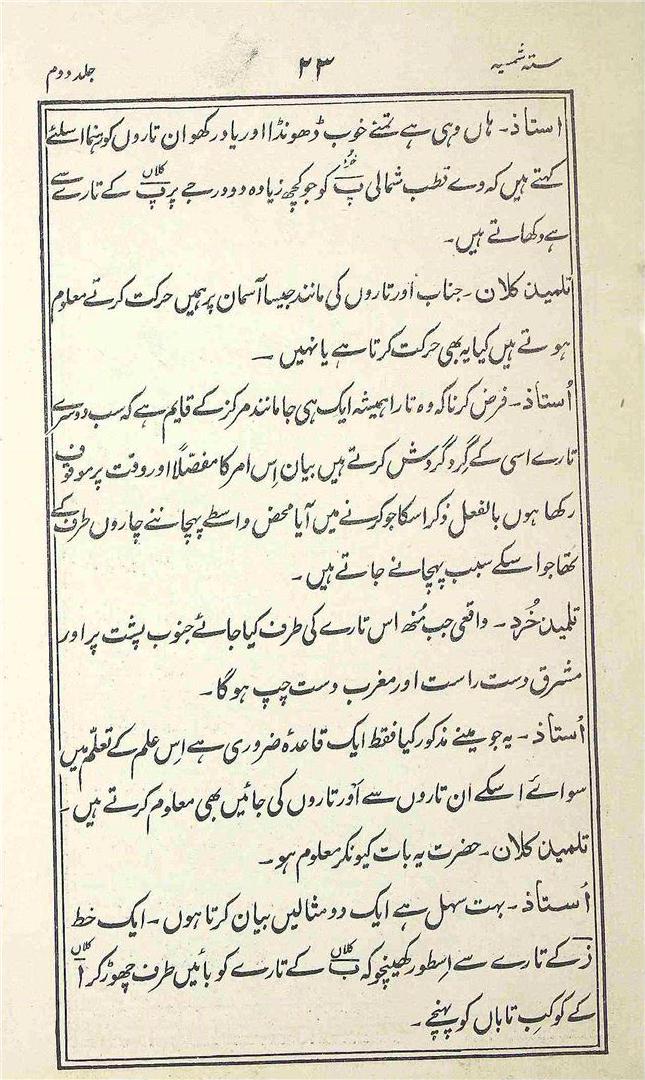 ستہ شمسیہ ۲۳ جلد دوم
استاذ۔ ہاں وہی ہے تمنے خوب ڈھونڈا اور یاد رکھو ان تاروں کو رہنما اسلئے
کہتے ہیں کہ وے قطب شمالی پ خرد کو جو کچھ زیادہ دو درجے پر پ کلاں کے تارے سے
ہے دکھاتے ہیں۔
تلمیذ کلان۔ جناب اور تاروں کی مانند جیسا آسمان پر ہمیں حرکت کرتے معلوم
ہوتے ہیں کیا یہ بھی حرکت کرتا ہے یا نہیں ۔
اُستاذ۔ فرض کرنا کہ وہ تارا ہمیشہ ایک ہی جا مانند مرکز کے قایم ہے کہ سب دوسرے
تارے اسی کے گِرد گردش کرتے ہیں بیان اِس امر کا مفصّلًا اور وقت پر موقوف
رکھا ہوں بالفعل ذکر اسکا جو کرنے میں آیا محض واسطے پہچاننے چاروں طرف کے
تھا جو اسکے سبب پہچانے جاتے ہیں۔
تلمیذ خُرد۔ واقعی جب مُنھ اس تارے کی طرف کیا جائے جنوب پشت پر اور
مشرق دست راست اور مغرب دست چپ ہو گا۔
اُستاذ۔ یہ جو مینے مذکور کیا فقط ایک قاعدۂ ضروری ہے اِس علم کے تعلّم میں
سواے اسکے ان تاروں سے اَور تاروں کی جائیں بھی معلوم کرتے ہیں۔
تلمیذ کلان۔ حضرت یہ بات کیونکر معلوم ہو۔
اُستاذ۔ بہت سہل ہے ایک دو مثالیں بیان کرتا ہوں۔ ایک خط
ز کے تارے سے اِسطور کھینچو کہ ب کلاں کے تارے کو بائیں طرف چھوڑ کر ا کلاں
کے کوکبِ تاباں کو پہنچے۔